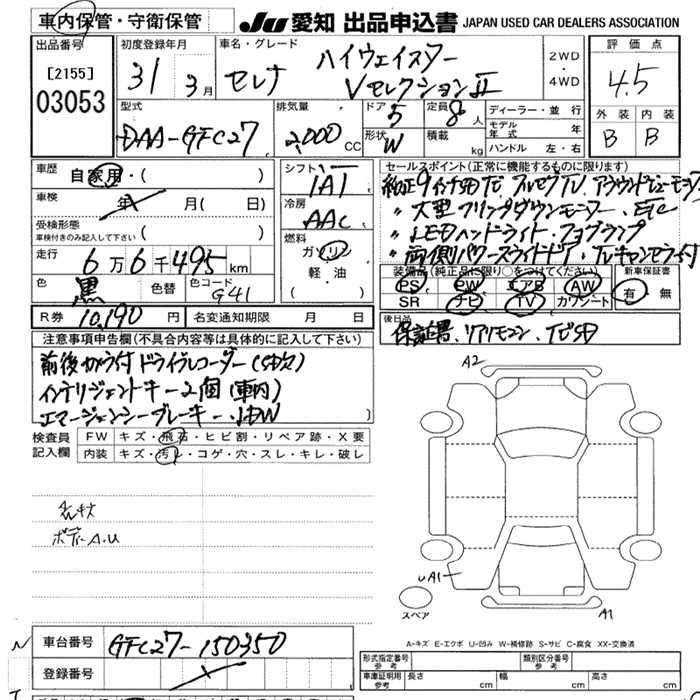 車内保管・守衛保管
JU 愛知 出品申込書 JAPAN USED CAR DEALERS ASSOCIATION
出品番号 [2155] 03053
初度登録年月 31年 3月
車名・グレード セレナ ハイウェイスター VセレクションⅡ
2WD・4WD
評価点 4.5
外装 B 内装 B
型式 DAA-GFC27
排気量 2,000 CC
ドア 5 定員 8人
形状 W 積載 kg
ディーラー・並行
モデル年式 年
ハンドル 左・右
車歴 自家用 ( )
車検 年 月(日)
受検形態 車検付きのみ記入して下さい ( )
走行 6万6千495km
色 黒 色替 色コード G41
シフト IAT
冷房 AAC
燃料 ガソリン 軽油 ( )
R券 10,190円 名変通知期限 月 日
セールスポイント(正常に機能するものに限ります)
純正9インチSDナビ フルセグTV アラウンドビューモニター
〃 大型フリップダウンモニター・ETC
〃 LEDヘッドライト・フォグランプ
〃 両側パワースライドドア・TVキャンセラー付
装備品(純正品に限り○をつけてください)
PS PW エアB AW
SR ナビ TV カワシート
新車保証書 有・無
後日品
保証書、リアリモコン、ナビSD
注意事項申告欄(不具合内容等は具体的に記入して下さい)
前後カメラ付ドライブレコーダー(社外)
インテリジェントキー2個(車内)
エマージェンシーブレーキ・LDW )
検査員記入欄
FW キズ・飛石・ヒビ割・リペア跡・X要
内装 キズ・汚れ・コゲ・穴・スレ・キレ・破レ
ボデーA.U
A2
UA1
A1
スペア
A-キズ E-エクボ U-凹み W-補修跡 S-サビ C-腐食 XX-交換済
車台番号 GFC27-150350
登録番号
形式指定番号 参考 類別区分番号 参考
車庫証明用 参考 長さ cm 幅 cm 高さ cm